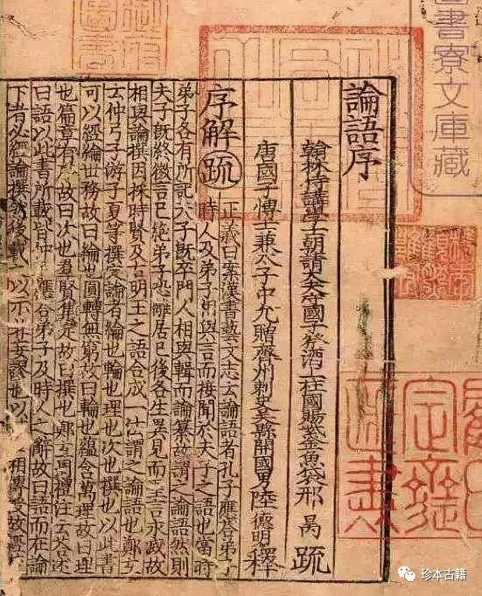 論語序
翰林侍講學士朝請大夫守國子祭酒上柱國賜紫金魚袋邢昺 疏
唐國子博士兼太子中允贈齊州刺史吳縣開國男陸德明釋
序解疏 正義曰案漢書藝文志云論語者孔子應荅弟子
時人及弟子相與言而接聞於夫子之語也當時
弟子各有所記夫子既卒門人相與輯而論篹故謂之論語然則
夫子既終微言已絕弟子恐離居已後各生異見而聖言永滅故
相與論撰因採時賢及古明王之語合成一法謂之論語也鄭玄
云仲弓子游子夏等撰定論者綸也輪也理也次也撰也以此書
可以經綸世務故曰綸也圓轉無窮故曰輪也蘊含萬理故曰理
也篇章有序故曰次也羣賢集定故曰撰也鄭玄周禮注云荅述
曰語以此書所載皆仲尼應荅弟子及時人之辭故曰語而在論
下者必經論撰然後載之以示非妄謬也以 相傳受故經
圖書寮文庫藏
珍本古籍